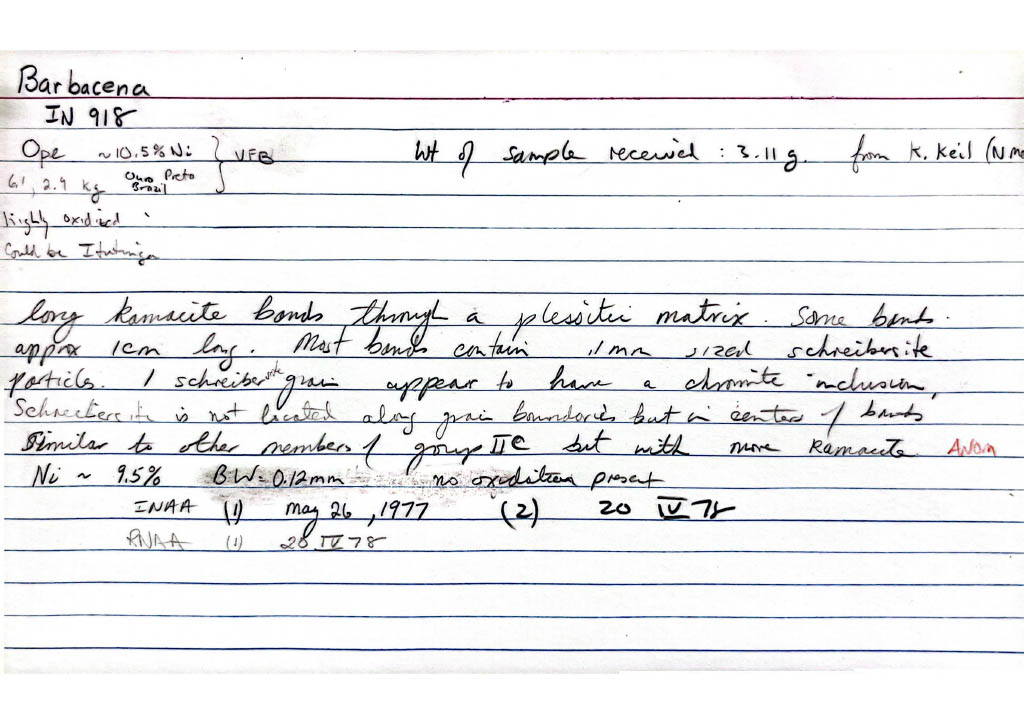 Barbacena
IN 918
Ope ~10.5% Ni } VFB Wt of sample received : 3.11 g. from K. Keil (NM
61, 2.9 kg Ouro Preto Brazil
highly oxidized
Could be Itutinga
long kamacite bands through a plessitic matrix. Some bands
approx 1cm long. Most bands contain .1mm sized schreibersite
particles. 1 schreibersite grain appear to have a chromite inclusion,
Schreibersite is not located along grain boundaries but in centers of bands
Similar to other members of group IIC but with more kamacite Anom
Ni ~ 9.5% BW=0.12mm no oxidation present
INAA (1) may 26, 1977 (2) 20 IV 78
RNAA (1) 20 IV 78